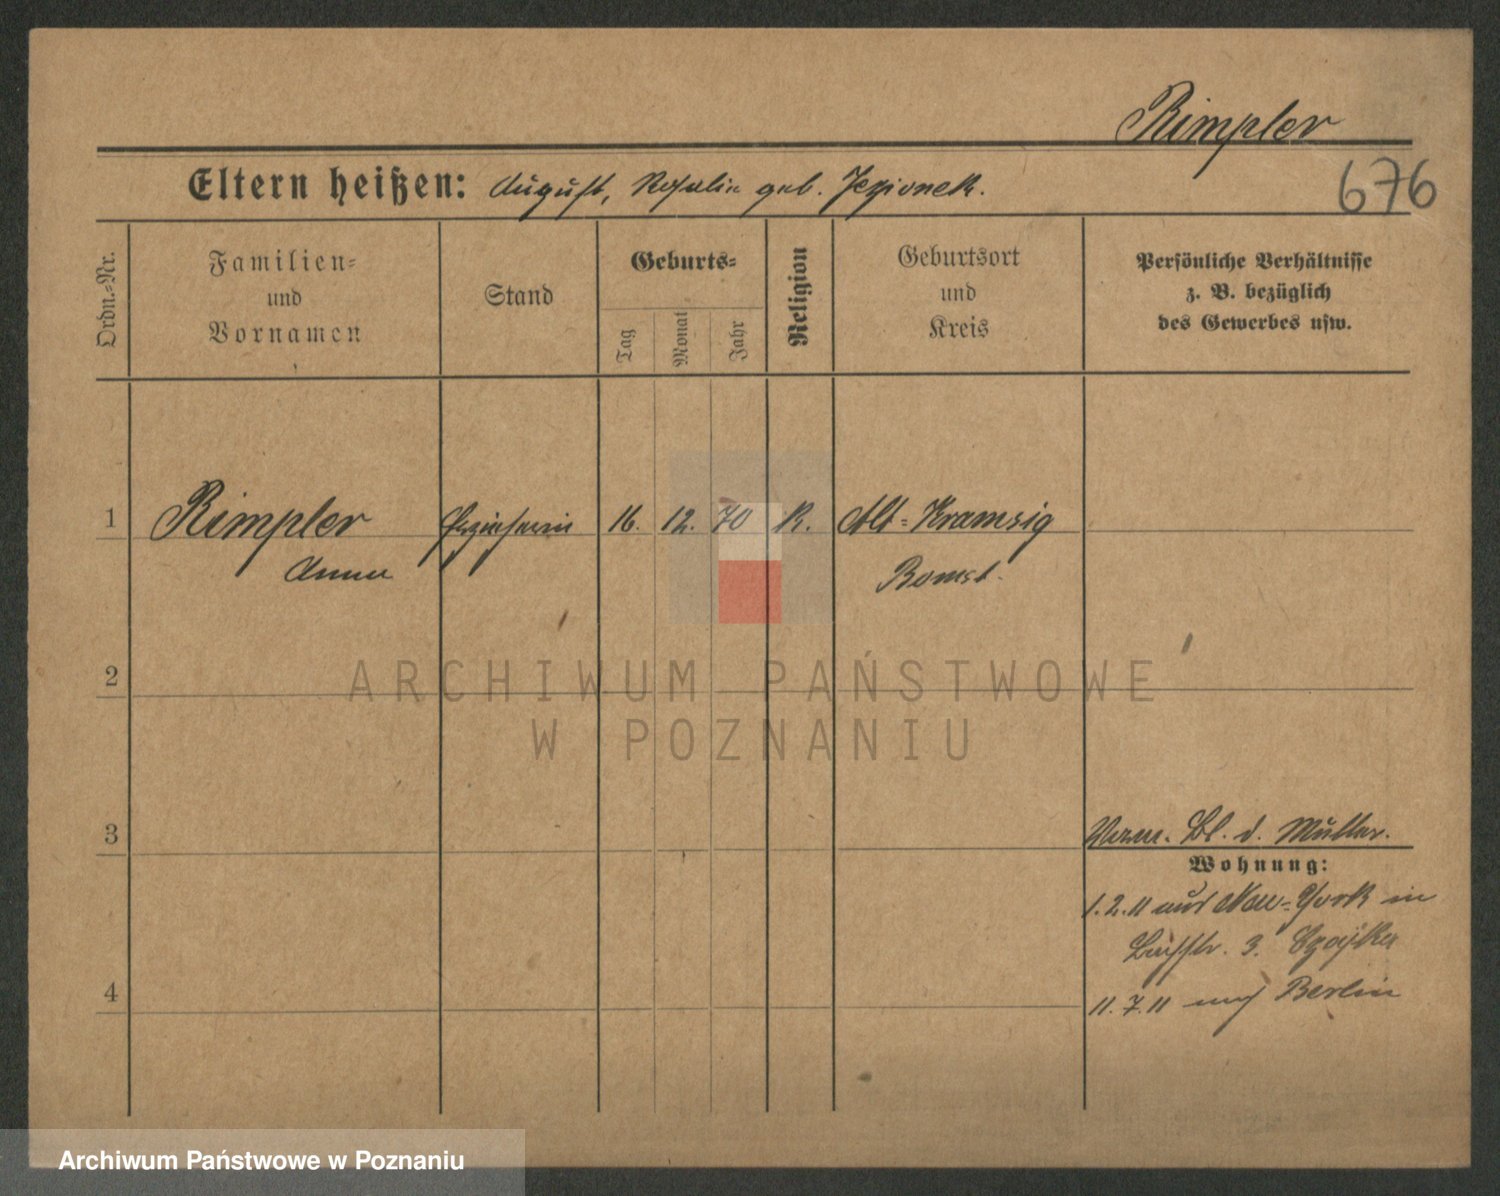 Rimpler
676
Eltern heißen: August, Rosalie geb. Jezionek.
Ordn.-Nr.
Familien-
und
Vornamen
Stand
Geburts-
Tag
Monat
Jahr
Religion
Geburtsort
und
Kreis
Persönliche Verhältnisse
z. B. bezüglich
des Gewerbes usw.
1 Rimpler Erzieherin 16. 12. 70 K. Alt-Kramzig
Anna Bomst.
ARCHIWUM PAŃSTWOWE
W POZNANIU
2
3
Bl. d. Mutter.
Wohnung:
1.2.11 aus New-York in
3. Czajka
4
11.7.11 nach Berlin
Archiwum Państwowe w Poznaniu